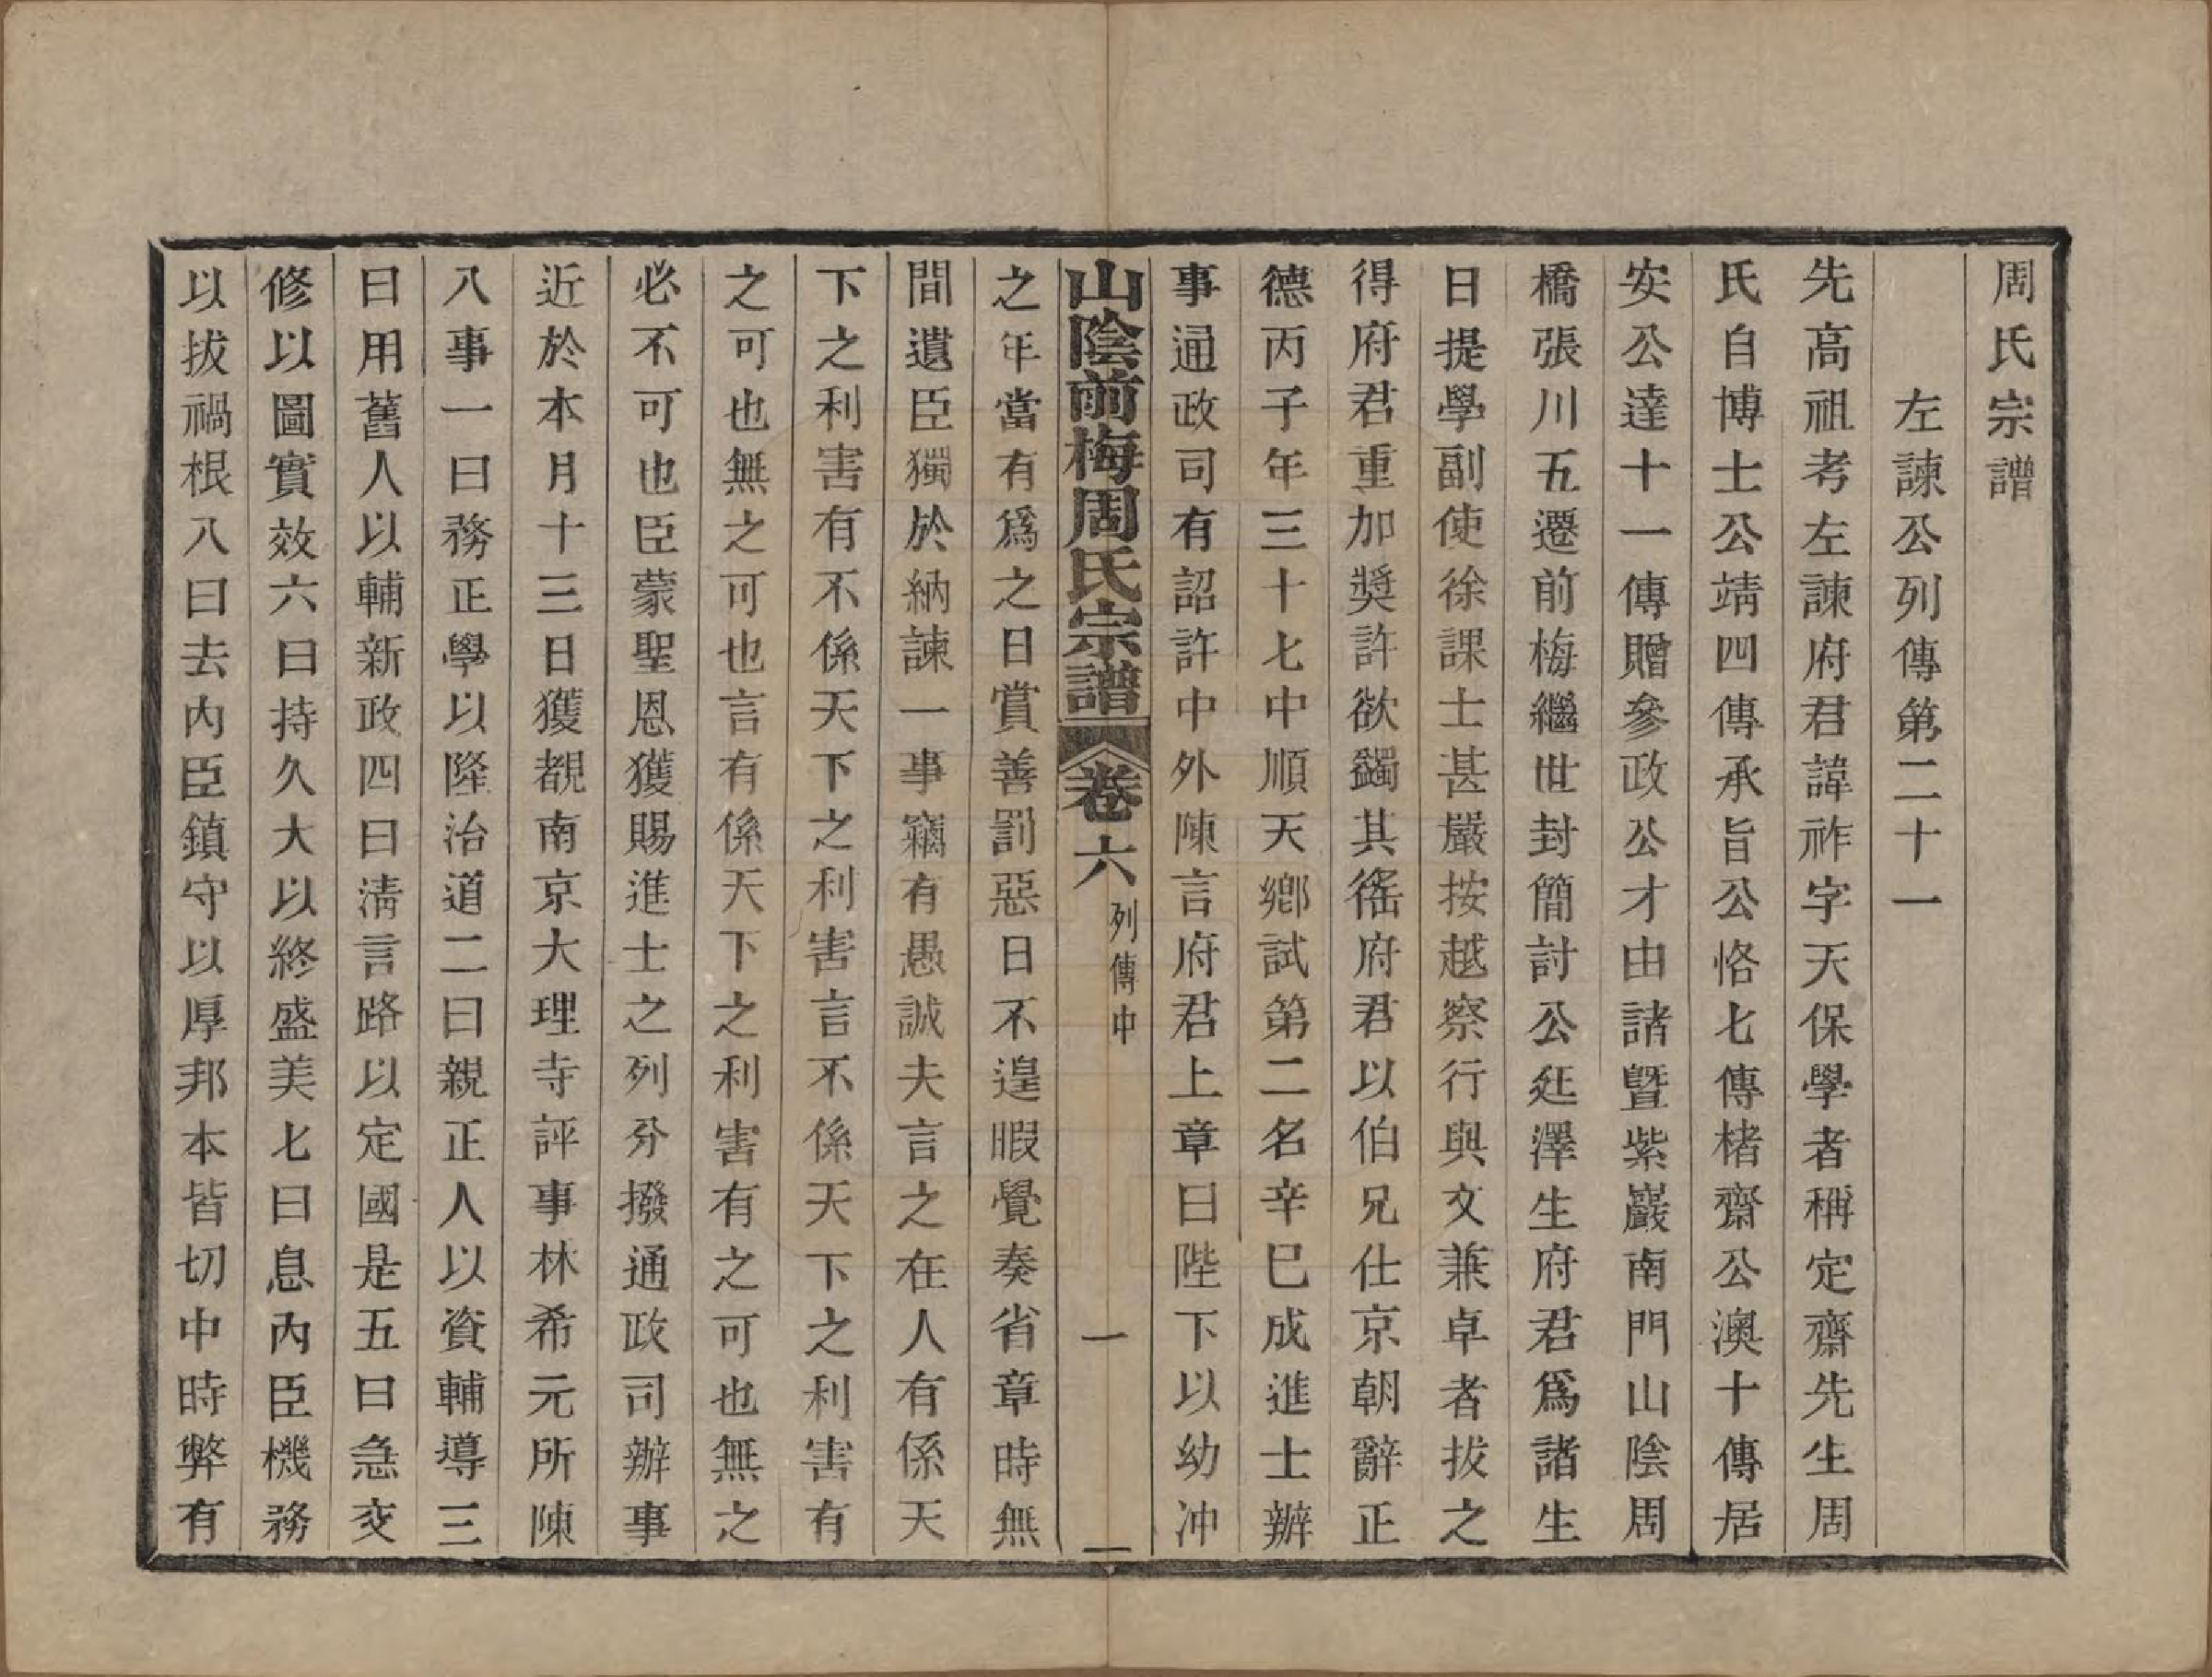 周氏宗譜
左諫公列傳第二十一
先高祖考左諫府君諱祚字天保學者稱定齋先生周
氏自博士公靖四傳承旨公恪七傳楮齋公澳十傳居
安公達十一傳贈參政公才由諸暨紫巖南門山陰周
橋張川五遷前梅繼世封簡討公廷澤生府君爲諸生
日提學副使徐課士甚嚴按越察行與文兼卓者拔之
得府君重加獎許欲蠲其徭府君以伯兄仕京朝辭正
德丙子年三十七中順天鄉試第二名辛巳成進士辦
事通政司有詔許中外陳言府君上章曰陛下以幼冲
山陰前梅周氏宗譜 卷六 列傳中 一
之年當有爲之日賞善罰惡日不遑暇覺奏省章時無
間遺臣獨於納諫一事竊有愚誠夫言之在人有係天
下之利害有不係天下之利害言不係天下之利害有
之可也無之可也言有係天下之利害有之可也無之
必不可也臣蒙聖恩獲賜進士之列分撥通政司辦事
近於本月十三日獲覩南京大理寺評事林希元所陳
八事一曰務正學以隆治道二曰親正人以資輔導三
曰用舊人以輔新政四曰淸言路以定國是五曰急交
修以圖實效六曰持久大以終盛美七曰息內臣機務
以拔禍根八曰去內臣鎮守以厚邦本皆切中時弊有